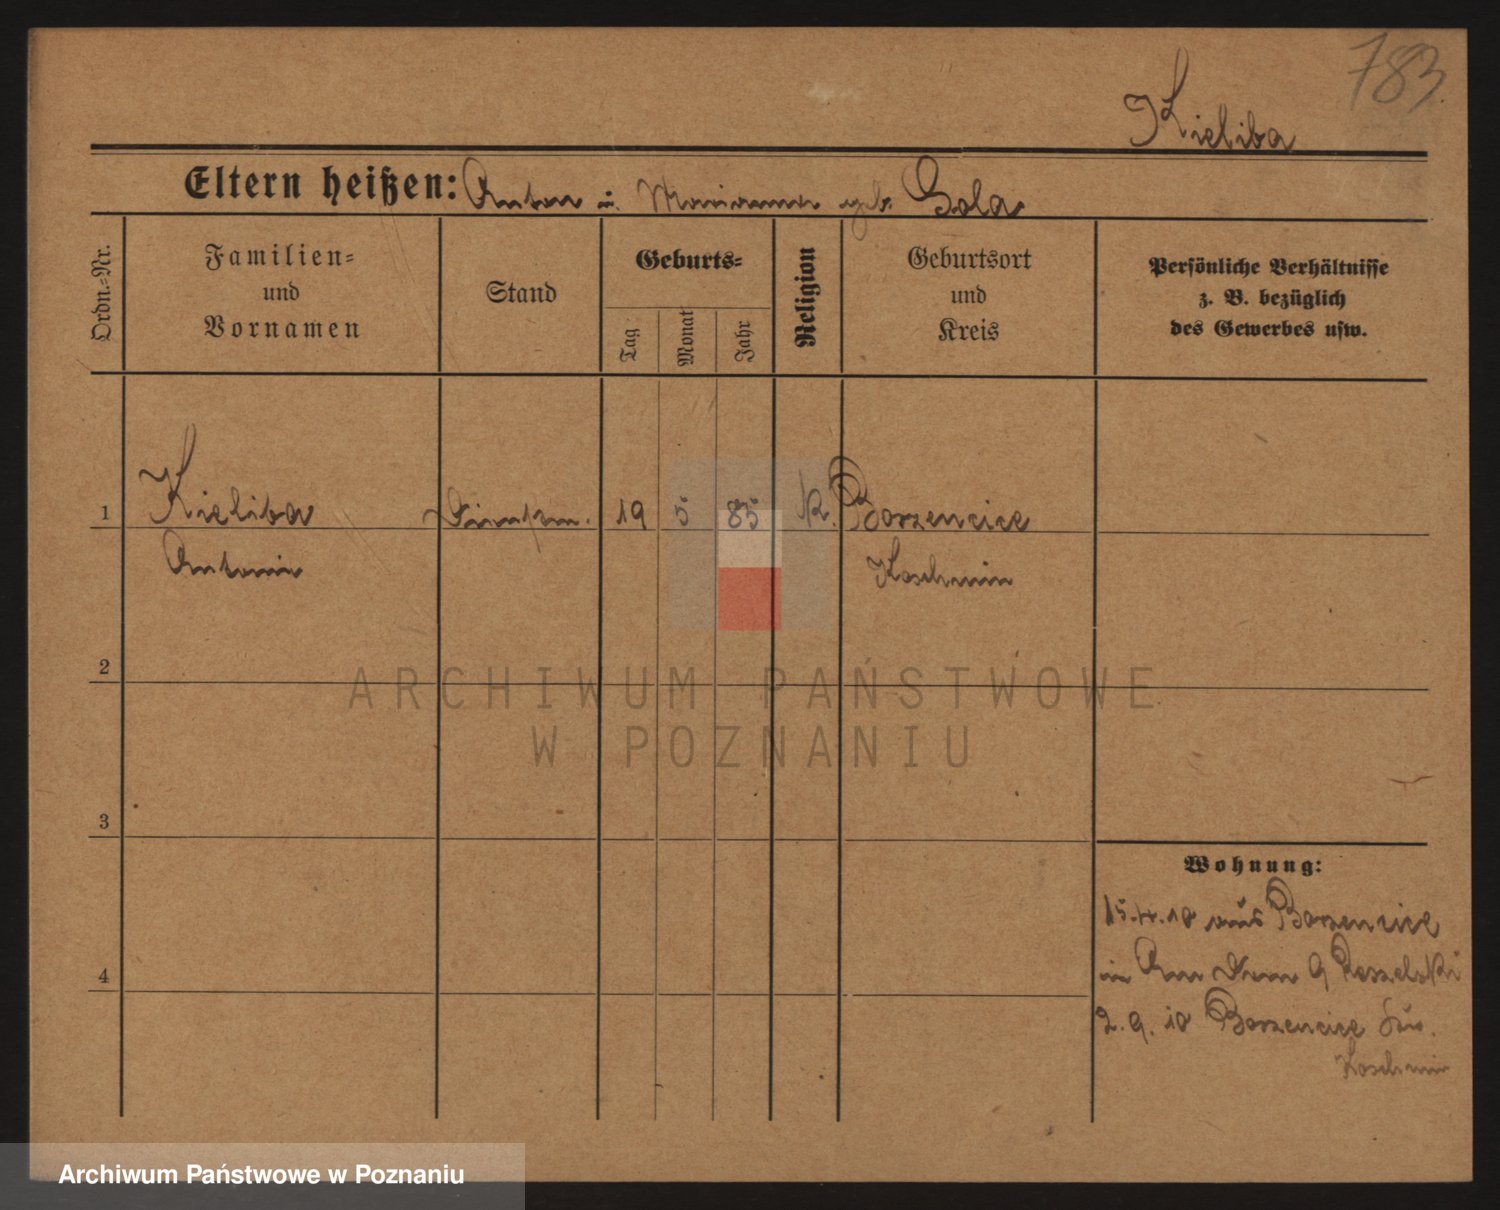 783
Kieliba
Eltern heißen: Anton u. Marianna geb. Gola
Ordn.-Nr.
Familien-
und
Vornamen
Stand
Geburts-
Tag
Monat
Jahr
Religion
Geburtsort
und
Kreis
Persönliche Verhältnisse
z. B. bezüglich
des Gewerbes usw.
1
Kieliba
Antonie
19
5
85
K.
Borzencice
Koschmin
2
3
4
ARCHIWUM PAŃSTWOWE
W POZNANIU
Wohnung:
15.4.10 aus Borzencice
in Am Dom 9
2.9.10 Borzencice
Koschmin
Archiwum Państwowe w Poznaniu